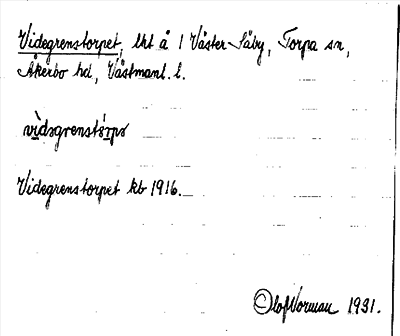 Videgrenstorpet, lht å 1 Väster Säby, Torpa sn,
Åkerbo hd, Västmanl. l.
vìdəgrenstǻrpə
Videgrenstorpet kb 1916.
Olof Norman 1931.